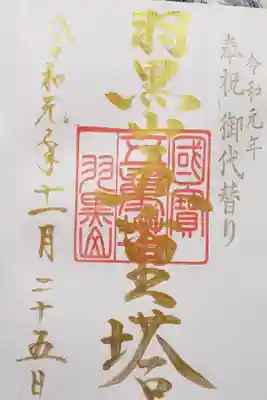 令和元年
奉祝 御代替り
羽黒山五重塔
國寶
五重塔
羽黒山
令和元年十一月二十五日